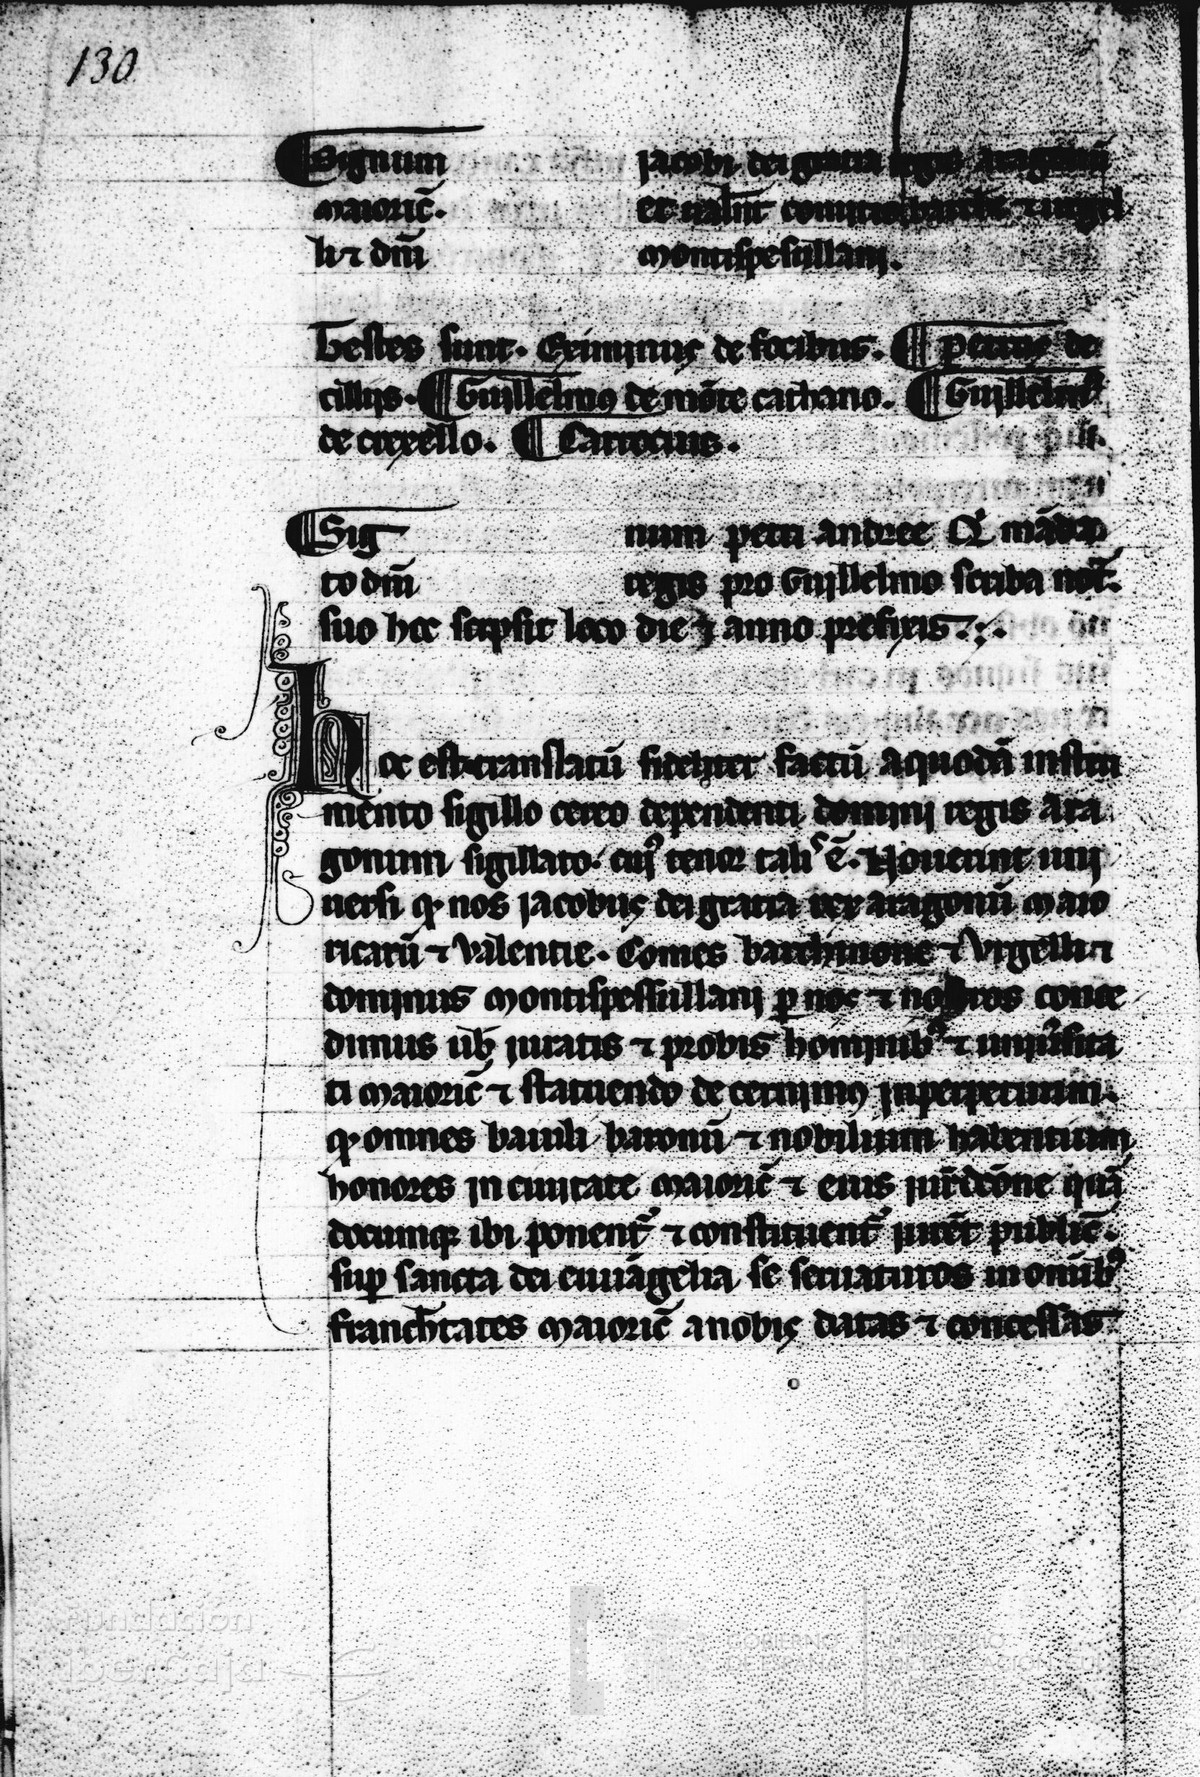 130
Signum jacobi dei gratia regis aragonũ
maioric̃. et ualñt comitis barchñ ⁊ urgel
li ⁊ dñi montispesullanj.
Testes sunt. Eximinus de focibus. ¶ petrus de
cillijs. ¶ Guillelmus de mõte cathano. ¶ Guillelmꝰ
de crexello. ¶ Carrocius.
Sig num petri andree Qͥ mãda
to dñi regis pro Guillelmo scriba not̃.
suo hec scripsit loco die ⁊ anno prefixis.
hoc est translatũ fideliter factũ aquodã instru
mento sigillo cereo dependenti dominj regis Ara
gonum sigillato. cuiꝰ tenor talis ẽ. Nouerint unj
uersi ꝙ nos jacobus dei gratia rex aragonũ Maio
ricarũ ⁊ Valentie. Comes barchinone ⁊ Vrgelli ⁊
dominus Montispessullanj ꝑ nos ⁊ nostros conce
dimus uob̃ juratis ⁊ probis hominibꝰ ⁊ uniũsita
ti maioric̃ ⁊ statuendo decernimus jnperpetuum.
ꝙ omnes baiuli baronũ ⁊ nobilium habentium
honores jn ciuitate maioric̃ ⁊ eius jur̃dcõne quã
documqꝫ ibi ponent᷑ ⁊ constituent᷑ jurẽt public̃.
suꝑ sancta dei euuãgelia se seruaturos in om̃ibꝰ
franch̃tates maioric̃ anobis datas ⁊ concessas
Fundación
iberCaja
GOBIERNO
DE ESPAÑA
MINISTERIO